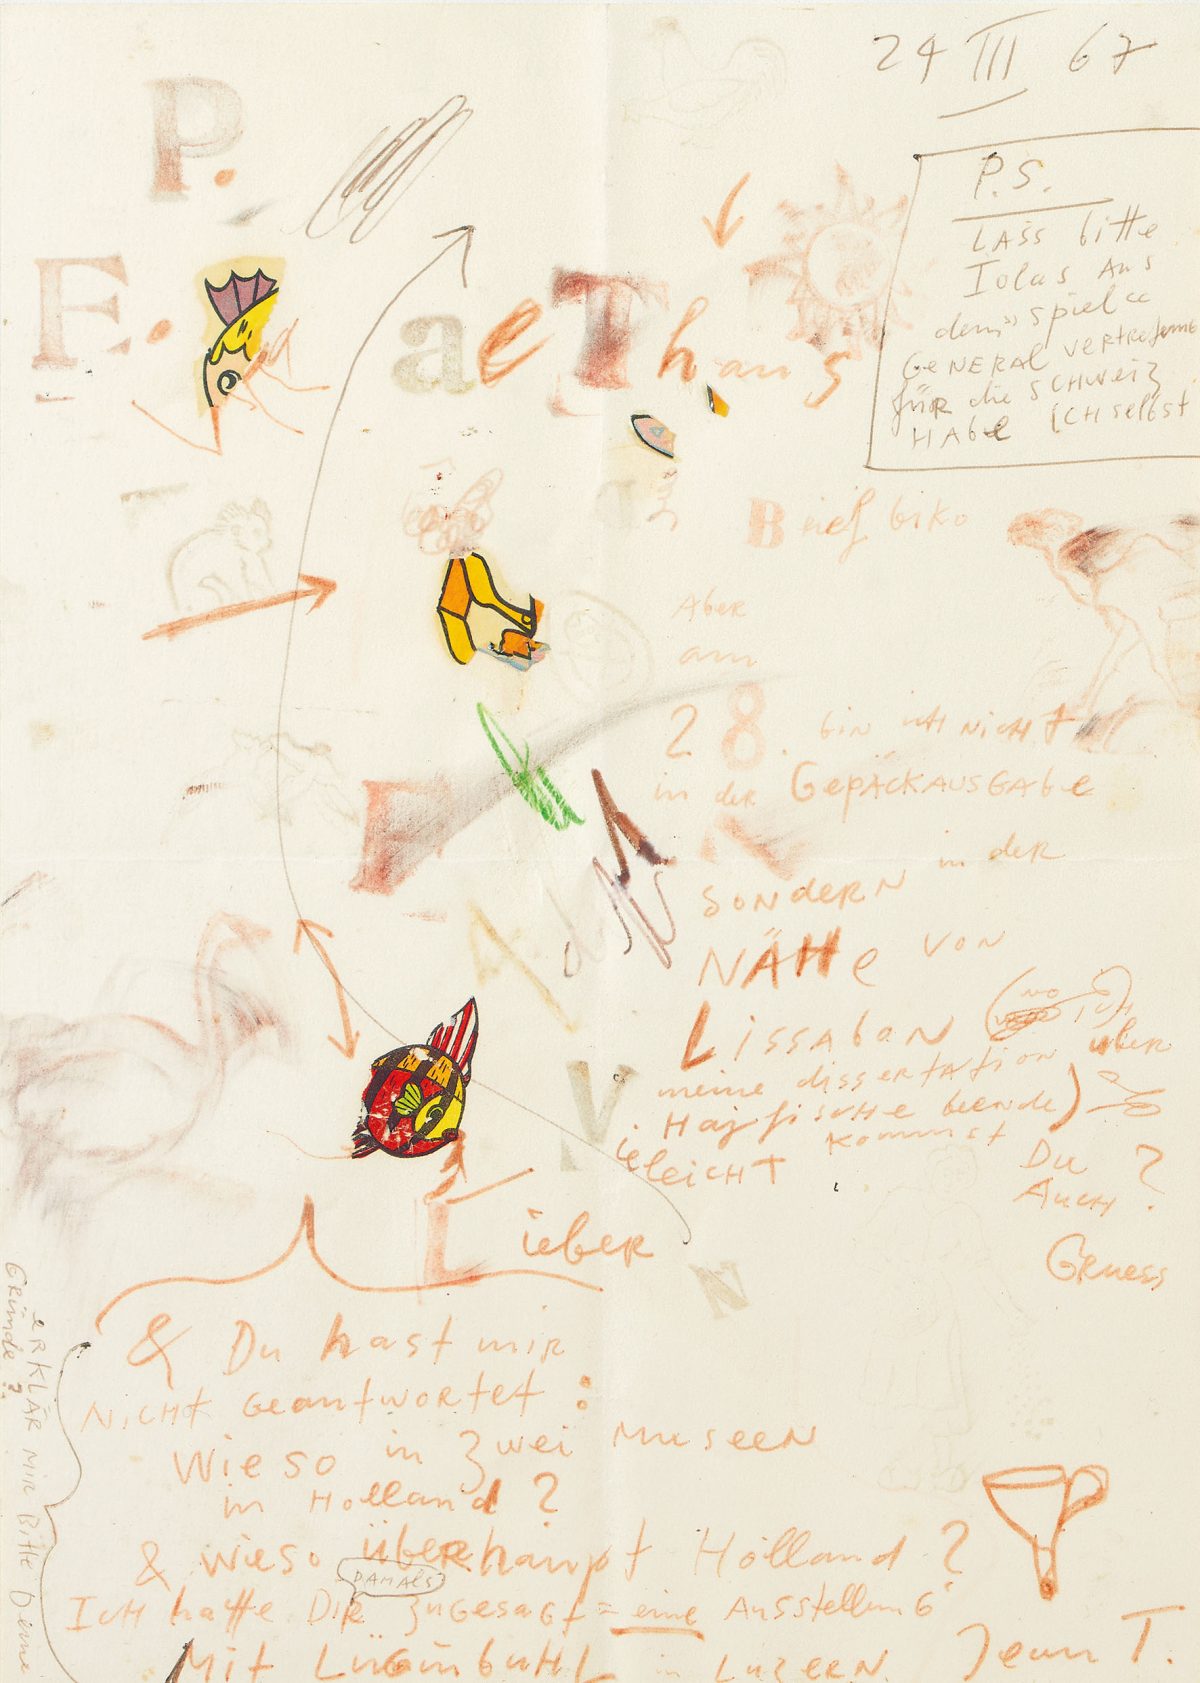 24 III 67
P.S.
LASS bitte
Iolas Aus
dem "Spiel"
GENERAL vertretung
für die SCHWEIZ
HAbe ICH selbst
P.
F. aeThans
Brief biko
Aber
am
28. bin ich NICHT
in der GepäCKAUSGAbe
SONDERN in der
NÄHe von
LissaboN
meine dissertation über
Hajfische beende)
kommst
ieleicht
Du
Auch ?
Gruess
Lieber
N
& Du hast mir
NICHT Geantwortet :
Wieso in zwei MuseeN
in Holland ?
& wieso überhaupt Holland ?
DAMALS
ICH hatte DIR zuGesaGt = eine AusstelluNG
Mit LüGinbüHL in LuzeRN.
Jean T.
eRKLÄR MIR Bitte Deine
GRÜNde ?